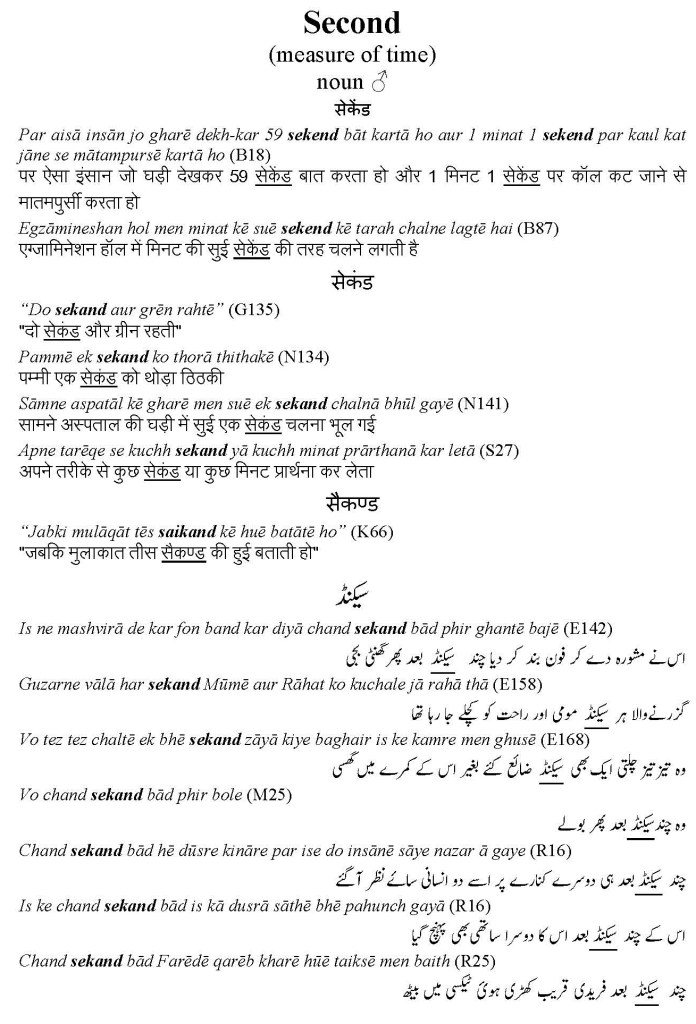 Second
(measure of time)
noun ♂
सेकेंड
Par aisā insān jo gharē dekh-kar 59 sekend bāt kartā ho aur 1 minat 1 sekend par kaul kat
jāne se mātampursē kartā ho (B18)
पर ऐसा इंसान जो घड़ी देखकर 59 सेकेंड बात करता हो और 1 मिनट 1 सेकेंड पर कॉल कट जाने से
मातमपुर्सी करता हो
Egzāmineshan hol men minat kē suē sekend kē tarah chalne lagtē hai (B87)
एग्जामिनेशन हॉल में मिनट की सुई सेकेंड की तरह चलने लगती है
सेकंड
“Do sekand aur grēn rahtē” (G135)
"दो सेकंड और ग्रीन रहती"
Pammē ek sekand ko thorā thithakē (N134)
पम्मी एक सेकंड को थोड़ा ठिठकी
Sāmne aspatāl kē gharē men suē ek sekand chalnā bhūl gayē (N141)
सामने अस्पताल की घड़ी में सुई एक सेकंड चलना भूल गई
Apne tarēqe se kuchh sekand yā kuchh minat prārthanā kar letā (S27)
अपने तरीके से कुछ सेकंड या कुछ मिनट प्रार्थना कर लेता
सैकण्ड
“Jabki mulāqāt tēs saikand kē huē batātē ho” (K66)
"जबकि मुलाकात तीस सैकण्ड की हुई बताती हो"
سیکنڈ
Is ne mashvirā de kar fon band kar diyā chand sekand bād phir ghantē bajē (E142)
اس نے مشورہ دے کر فون بند کر دیا چند سیکنڈ بعد پھر گھنٹی بجی
Guzarne vālā har sekand Mūmē aur Rāhat ko kuchale jā rahā thā (E158)
گزرنے والا ہر سیکنڈ مومی اور راحت کو کچلے جا رہا تھا
Vo tez tez chaltē ek bhē sekand zāyā kiye baghair is ke kamre men ghusē (E168)
وہ تیز تیز چلتی ایک بھی سیکنڈ ضائع کئے بغیر اس کے کمرے میں گھسی
Vo chand sekand bād phir bole (M25)
وہ چند سیکنڈ بعد پھر بولے
Chand sekand bād hē dūsre kināre par ise do insānē sāye nazar ā gaye (R16)
چند سیکنڈ بعد ہی دوسرے کنارے پر اسے دو انسانی سائے نظر آ گئے
Is ke chand sekand bād is kā dusrā sāthē bhē pahunch gayā (R16)
اس کے چند سیکنڈ بعد اس کا دوسرا ساتھی بھی پہنچ گیا
Chand sekand bād Farēdē qarēb kharē hūē taiksē men baith (R25)
چند سیکنڈ بعد فریدی قریب کھڑی ہوئی ٹیکسی میں بیٹھ